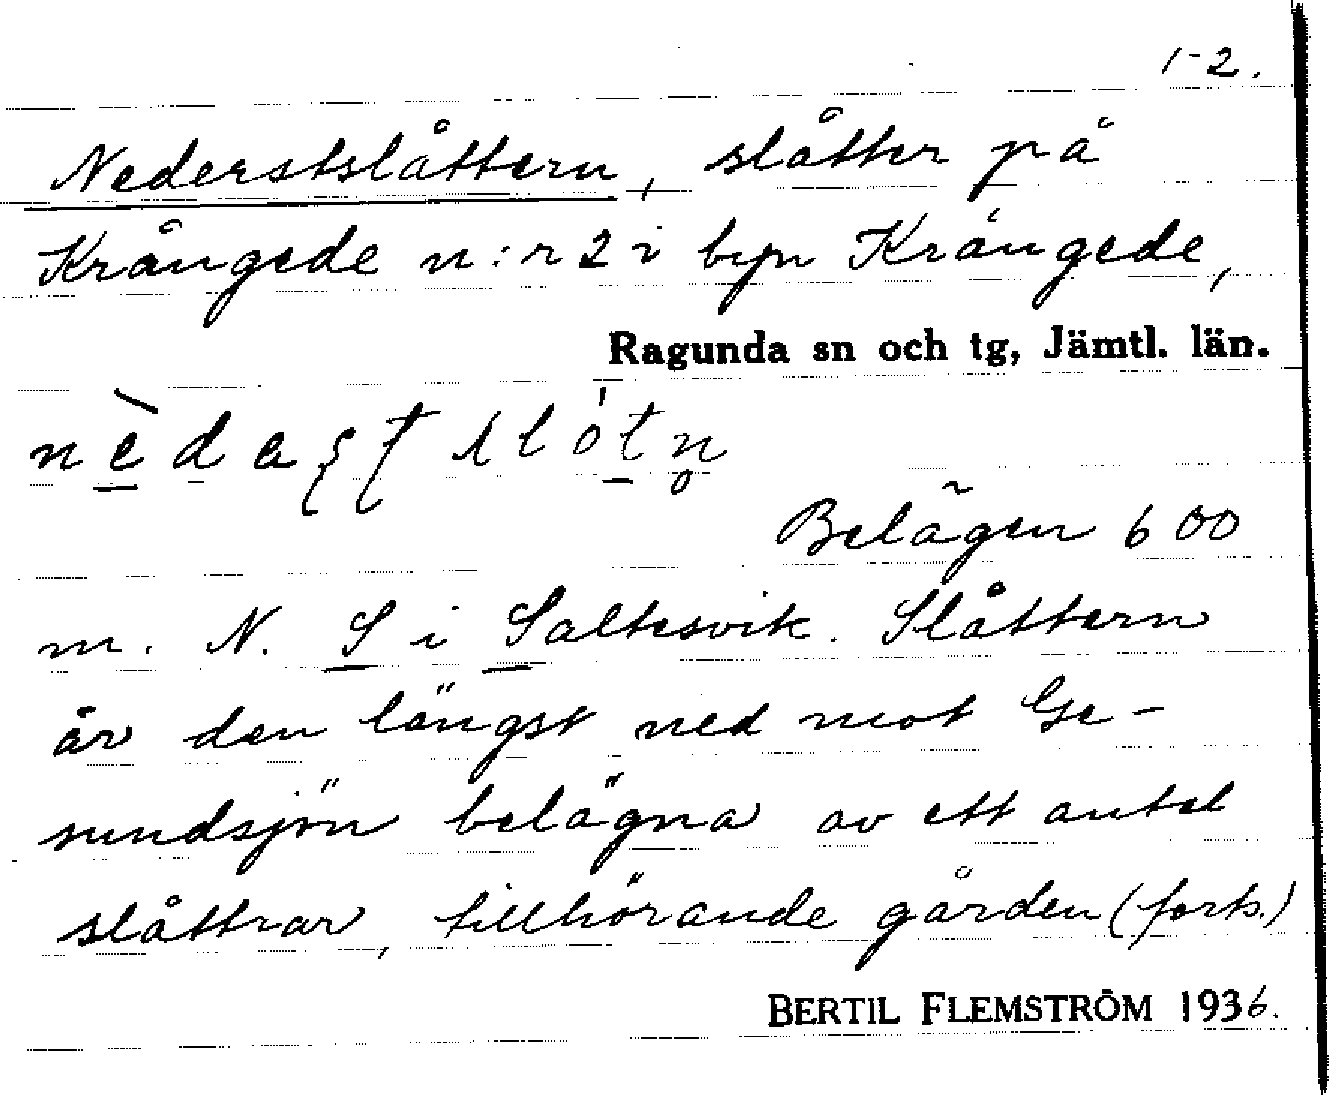 1-2.
Nederstslåttern, slåtter på
Krångede n:r 2 i byn Krångede,
Ragunda sn och tg, Jämtl. län.
Belägen 600
m. N. S i Saltesvik. Slåttern
är den längst ned mot Ge-
sundsjön belägna av ett antal
slåttrar, tillhörande gården (forts.)
BERTIL FLEMSTRÖM 1936.